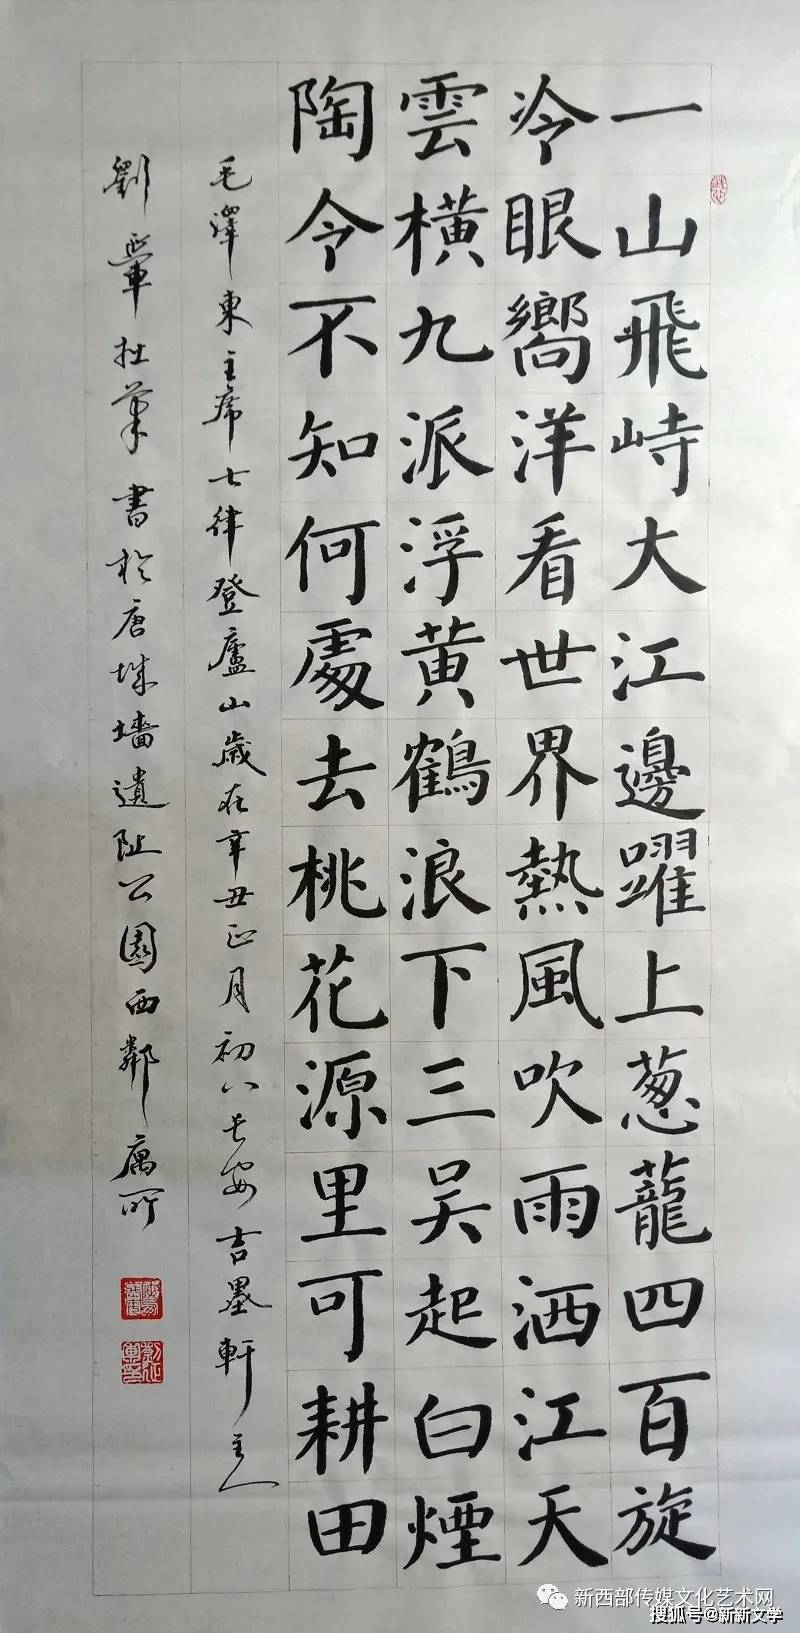 一山飛峙大江邊躍上葱蘢四百旋
冷眼嚮洋看世界熱風吹雨洒江天
雲橫九派浮黄鶴浪下三吴起白煙
陶令不知何處去桃花源里可耕田
毛澤東主席七律登廬山歲在辛丑正月初八長安吉墨軒主人
劉拙筆書於唐城墻遺阯公園西鄰寓所
新西部传媒文化艺术网
搜狐号@新新文学